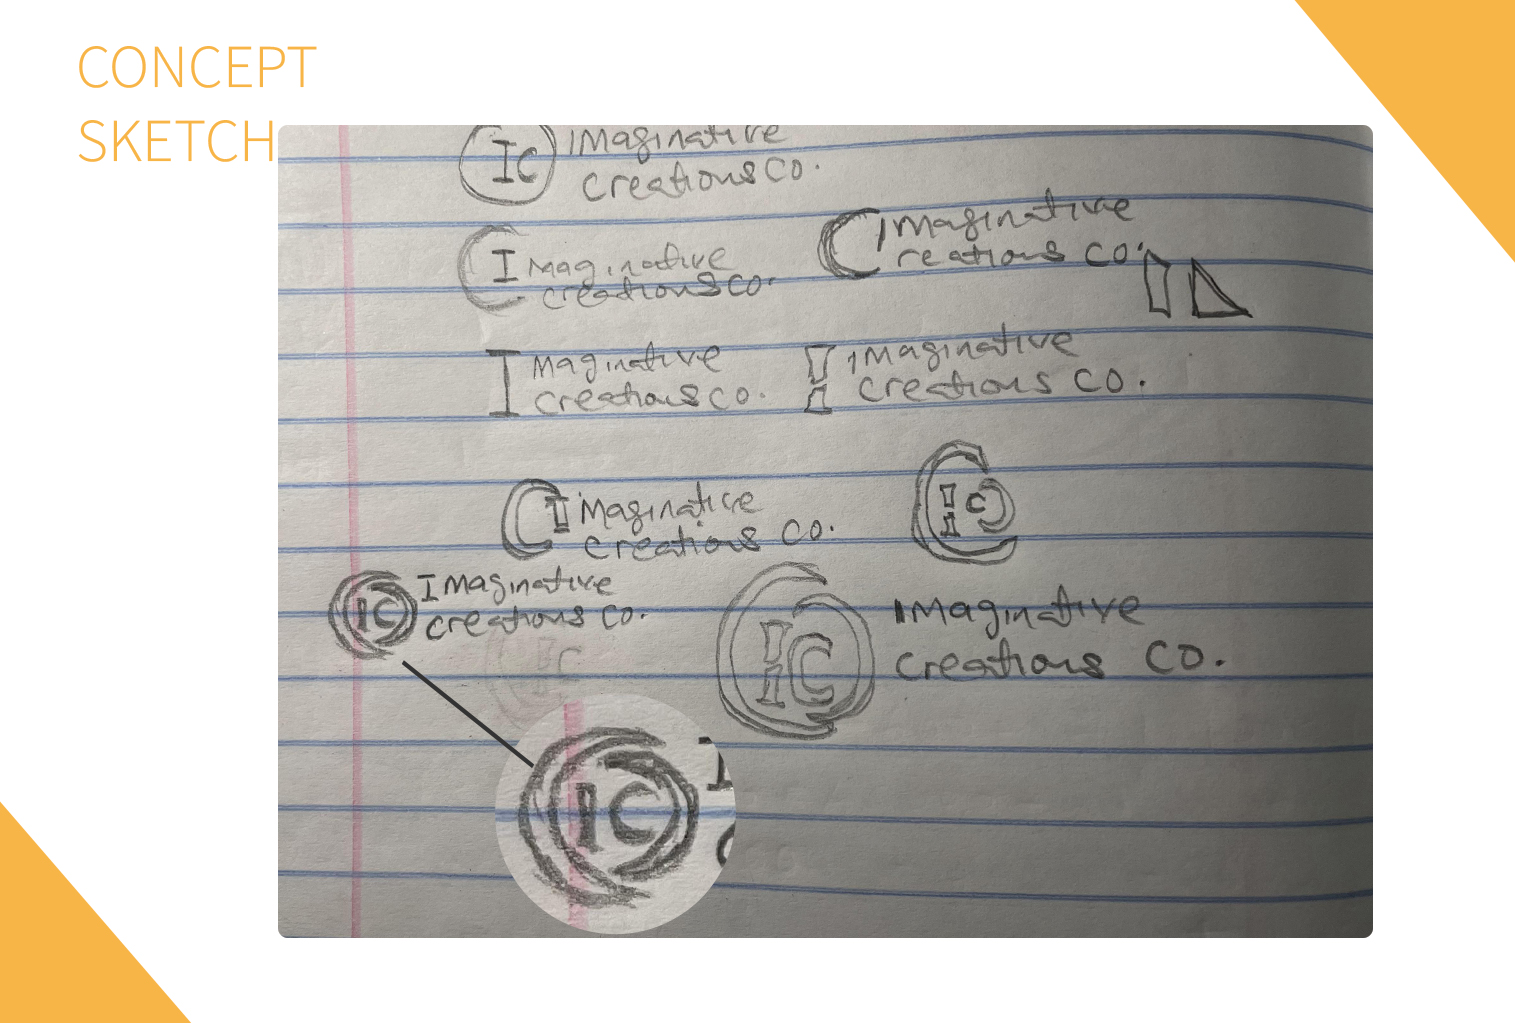 CONCEPT
SKETCH
IC Imaginative
creations co.
C I maginative
creations co.
C Imaginative
reations co.
I maginative
creations co.
! Imaginative
creations co.
CI Imaginative
creations co.
IC
IC Imaginative
creations co.
IC
IC Imaginative
creations co.
IC